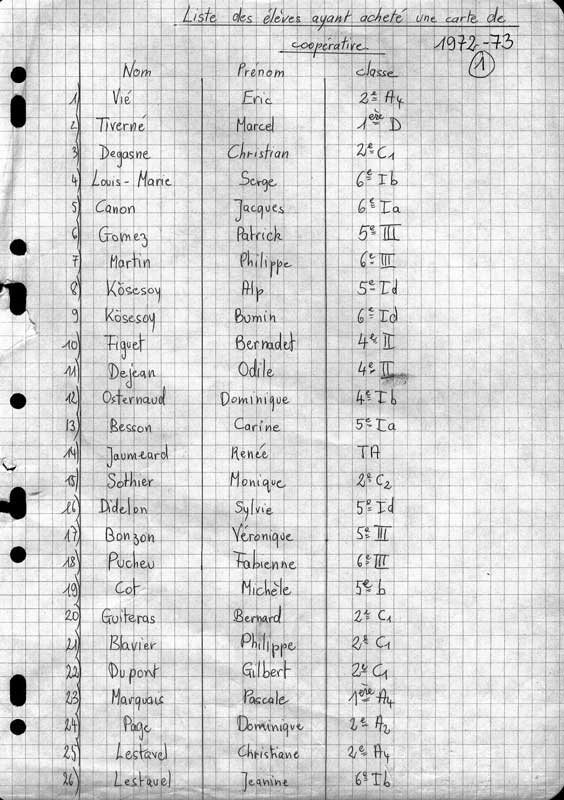 Liste des élèves ayant acheté une carte de
coopérative 1972-73
1
Nom Prénom classe
1) Vié Eric 2e A4
2) Tiverné Marcel 1ère D
3) Degasne Christian 2e C1
4) Louis-Marie Serge 6e Ib
5) Canon Jacques 6e Ia
6) Gomez Patrick 5e III
7) Martin Philippe 6e III
8) Kösesoy Alp 5e Id
9) Kösesoy Bumin 6e Id
10) Figuet Bernadet 4e II
11) Dejean Odile 4e II
12) Osternaud Dominique 4e Ib
13) Besson Carine 5e Ia
14) Jaumeard Renée TA
15) Sothier Monique 2e C2
16) Didelon Sylvie 5e Id
17) Bonzon Véronique 5e III
18) Pucheu Fabienne 6e III
19) Cot Michèle 5e b
20) Guiteras Bernard 2e C1
21) Blavier Philippe 2e C1
22) Dupont Gilbert 2e C1
23) Marquais Pascale 1ère A4
24) Page Dominique 2e A2
25) Lestavel Christiane 2e A4
26) Lestavel Jeanine 6e Ib